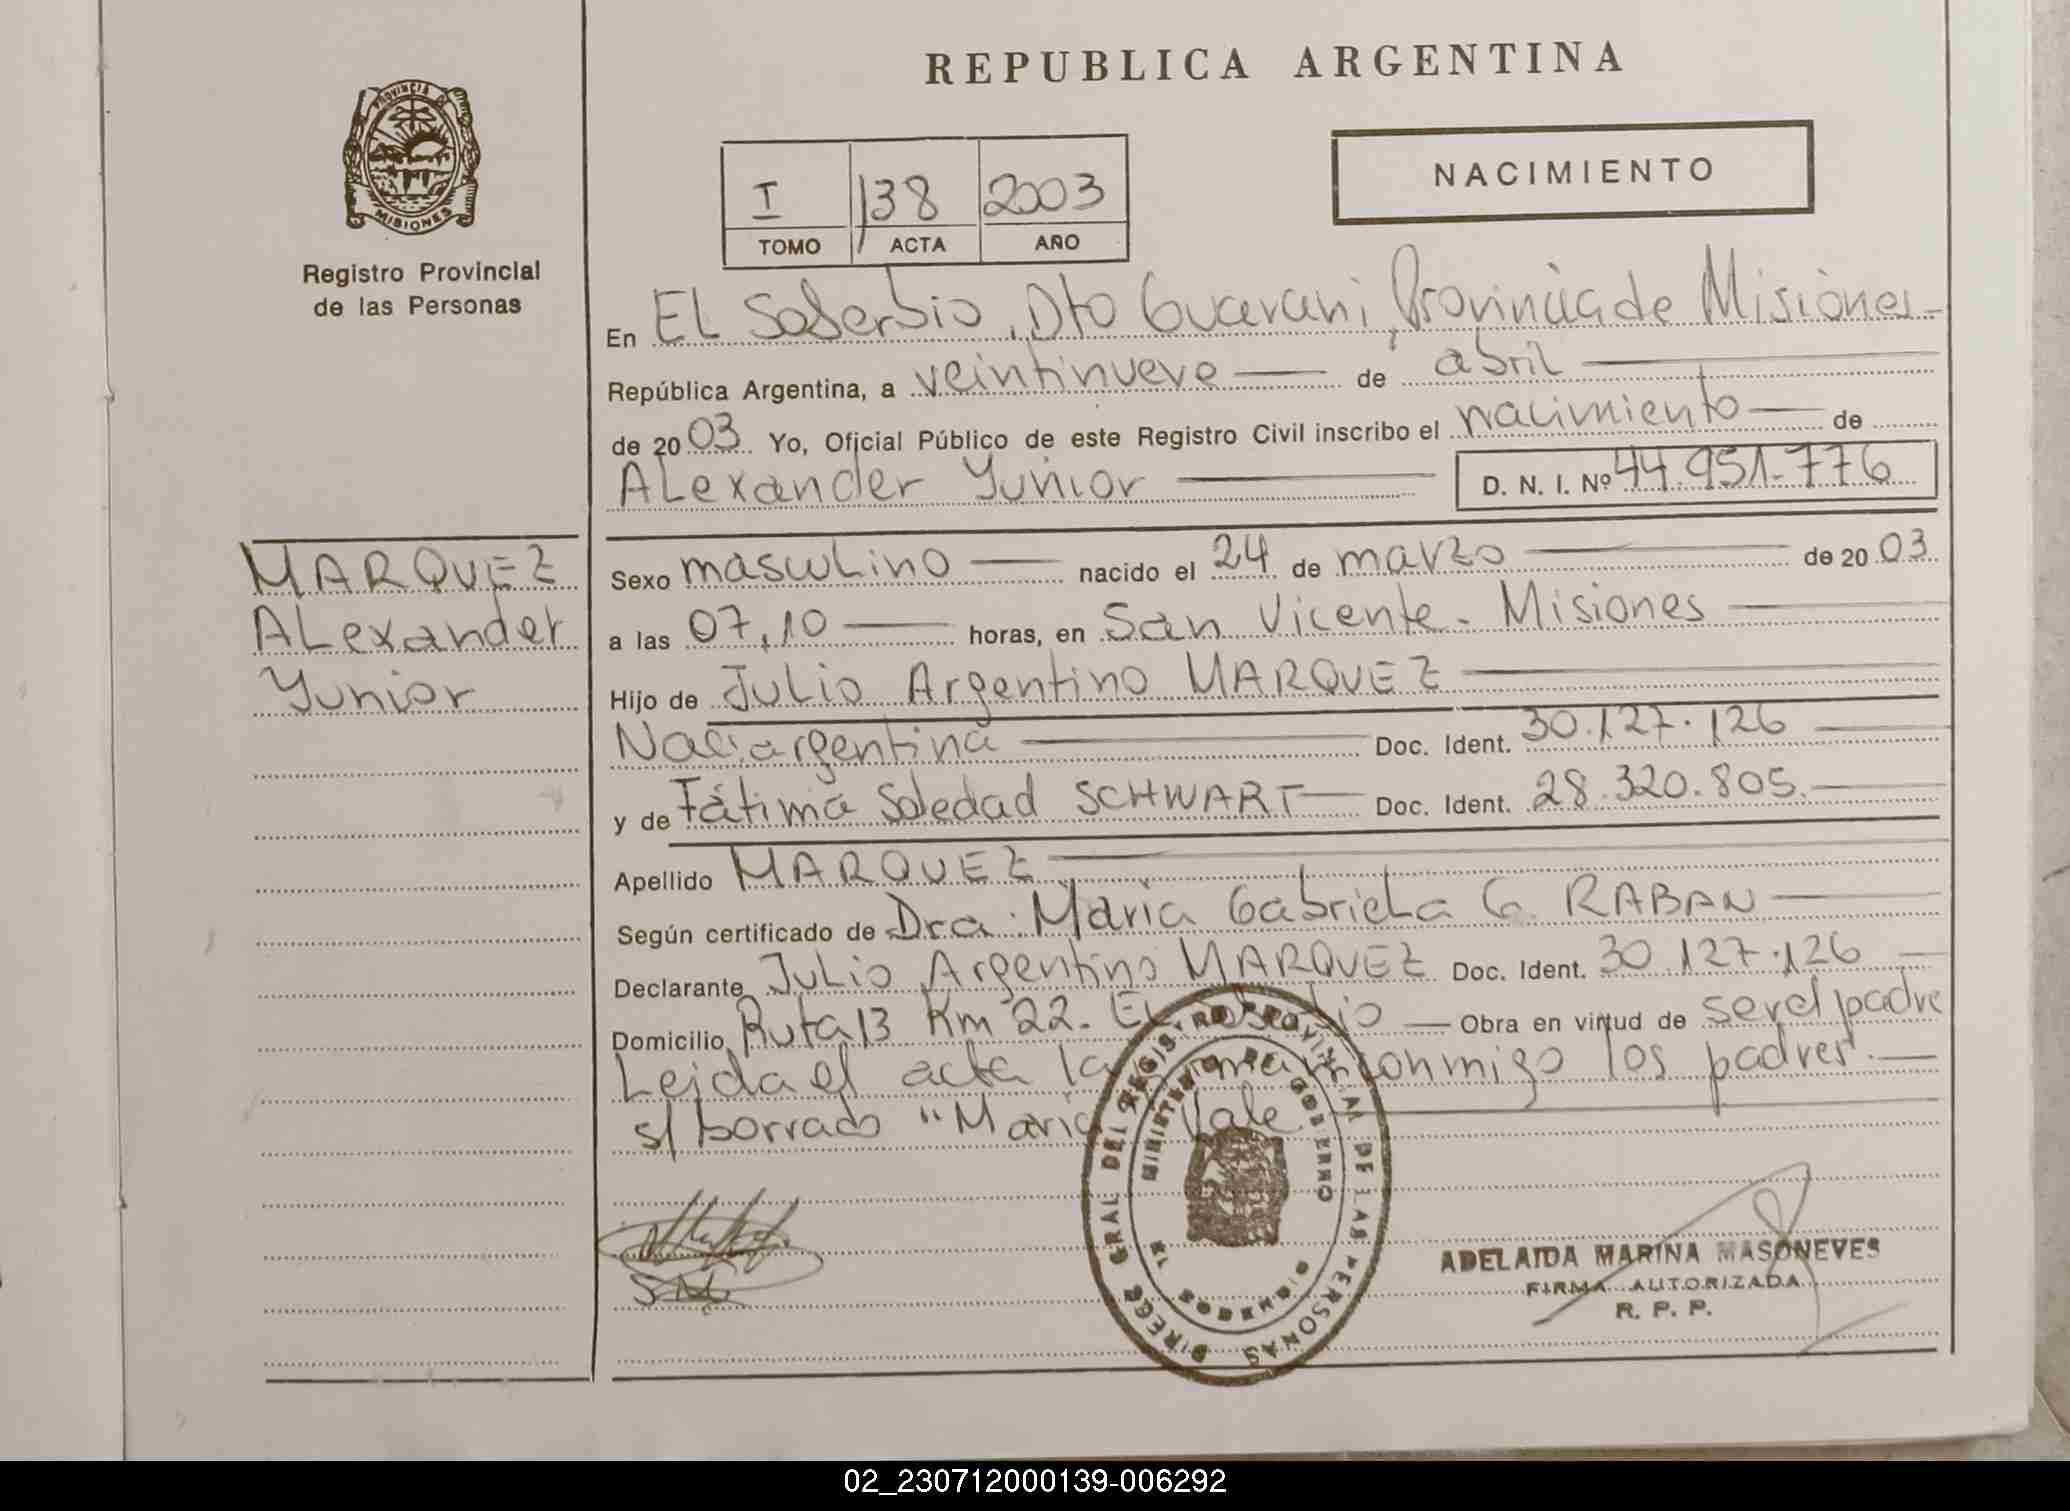 REPUBLICA ARGENTINA
PROVINCIA DE
MISIONES
Registro Provincial
de las Personas
I 138 2003
TOMO ACTA AÑO
NACIMIENTO
En EL Soberbio, Dto Guarani, Provincia de Misiones
República Argentina, a veintinueve de abril
de 2003 Yo, Oficial Público de este Registro Civil inscribo el nacimiento de
ALexander Yunior D. N. I. Nº 44.951.776
MARQUEZ
ALexander
Yunior
Sexo mascuLino nacido el 24 de marzo de 2003
a las 07,10 horas, en San Vicente - Misiones
Hijo de JuLio Argentino MARQUEZ
Nac. argentina Doc. Ident. 30.127.126
y de Fátima Soledad SCHWART Doc. Ident. 28.320.805.
Apellido MARQUEZ
Según certificado de Dra. María GabrieLa G. RABAN
Declarante JuLio Argentino MARQUEZ Doc. Ident. 30.127.126
Domicilio Ruta 13 Km 22. EL Soberbio Obra en virtud de ser el padre
Leida el acta la conmigo los padres.
s/ borrado "María" Vale
DIRECC GRAL DEL REGISTRO PROVINCIAL DE LAS PERSONAS
MINISTERIO DE GOBIERNO
MISIONES
ADELAIDA MARINA MASONEVES
FIRMA AUTORIZADA
R. P. P.
02_230712000139-006292